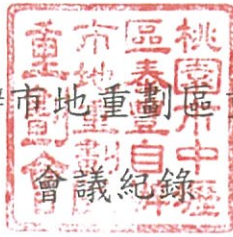 市地重劃區
會議紀錄
桃園市中壢
區泰豐自辦
市地重劃區
重劃會